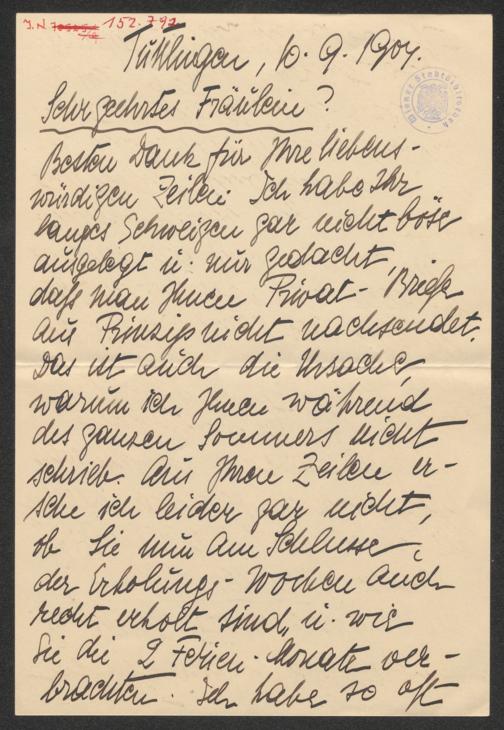 J.N. 152.797
Tuttlingen, 10. 9. 1904.
Sehr geehrtes Fräulein?
Wiener Stadtbibliothek
Besten Dank für Ihre liebens-
würdigen Zeilen. Ich habe Ihr
langes Schweigen gar nicht böse
ausgelegt u. nur gedacht,
daß man Ihnen Privat-Briefe
aus Prinzip nicht nachsendet.
Das ist auch die Ursache,
warum ich Ihnen während
des ganzen Sommers nicht
schrieb. Aus Ihren Zeilen er-
sehe ich leider gar nicht,
ob Sie nun am Schlusse
der Erholungs-Wochen auch
recht erholt sind, u. wie
Sie die 2 Ferien-Monate ver-
brachten. Ich habe so oft